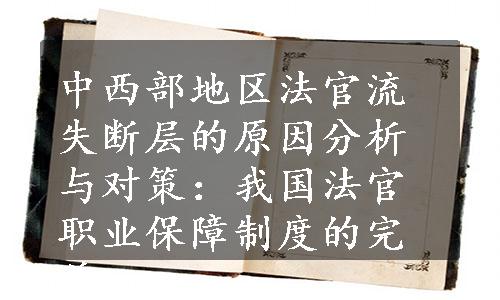 中西部地区法官流
失断层的原因分析
与对策：我国法官
职业保障制度的完